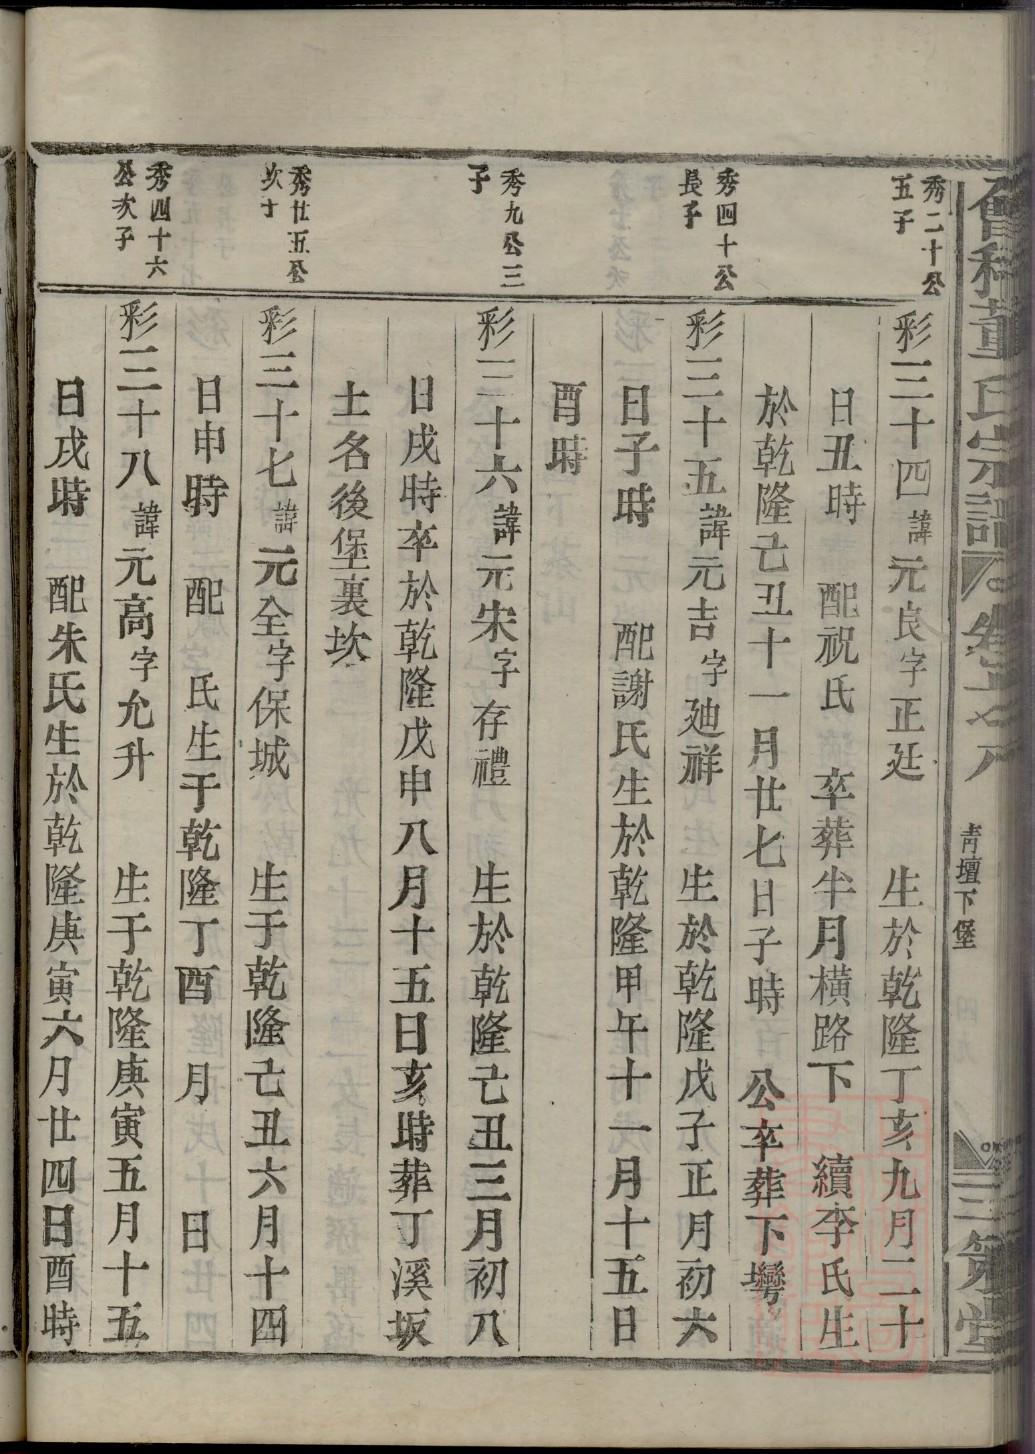 董氏宗譜
青壇下堡
三策堂
秀二十公
五子
彩三十四諱元良字正廷 生於乾隆丁亥九月二十
日丑時 配祝氏 卒葬半月橫路下 續李氏生
於乾隆己丑十一月廿七日子時 公卒葬下灣
秀四十公
長子
彩三十五諱元吉字廸祥 生於乾隆戊子正月初六
日子時 配謝氏生於乾隆甲午十一月十五日
酉時
秀九公三
子
彩三十六諱元宋字存禮 生於乾隆己丑三月初八
日戌時卒於乾隆戊申八月十五日亥時葬丁溪坂
土名後堡裏坎
秀廿五公
次子
彩三十七諱元全字保城 生于乾隆己丑六月十四
日申時 配 氏生于乾隆丁酉 月 日
秀四十六
公次子
彩三十八諱元高字允升 生于乾隆庚寅五月十五
日戌時 配朱氏生於乾隆庚寅六月廿四日酉時